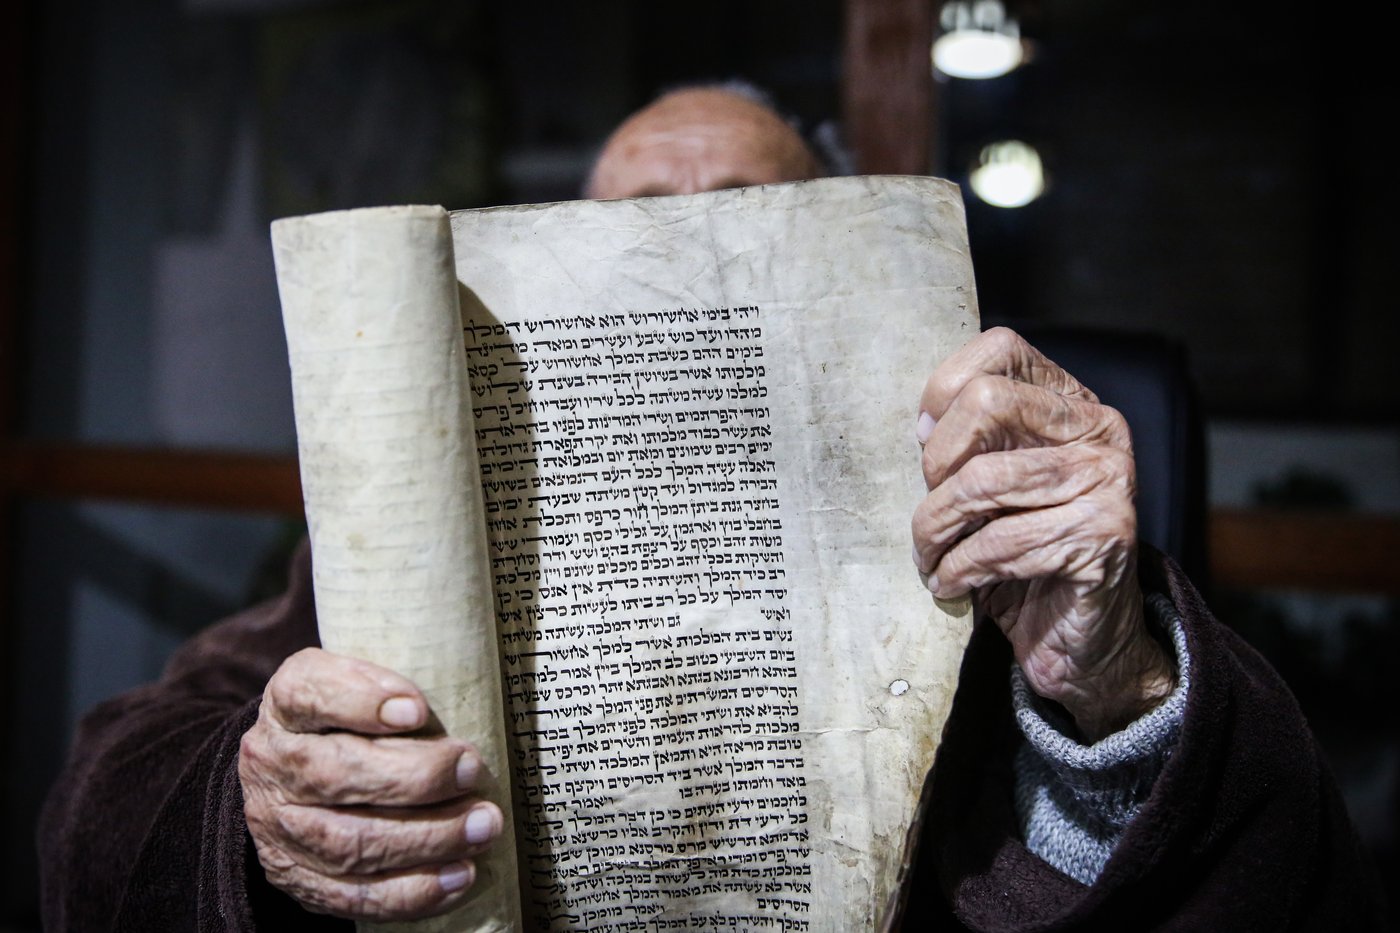 ויהי בימי אחשורוש הוא אחשורוש המלך
מהדו ועד כוש שבע ועשרים ומאה מדינה
בימים ההם כשבת המלך אחשורוש על כסא
מלכותו אשר בשושן הבירה בשנת שלוש
למלכו עשה משתה לכל שריו ועבדיו חיל פרס
ומדי הפרתמים ושרי המדינות לפניו בהראתו
את עשר כבוד מלכותו ואת יקר תפארת גדולתו
ימים רבים שמונים ומאת יום ובמלואת הימים
האלה עשה המלך לכל העם הנמצאים בשושן
הבירה למגדול ועד קטן משתה שבעת ימים
בחצר גנת ביתן המלך חור כרפס ותכלת אחוז
בחבלי בוץ וארגמן על גלילי כסף ועמודי שש
מטות זהב וכסף על רצפת בהט ושש ודר וסחרת
והשקות בכלי זהב וכלים מכלים שונים ויין מלכות
רב כיד המלך והשתיה כדת אין אנס כי כן
יסד המלך על כל רב ביתו לעשות כרצון איש
ואיש גם ושתי המלכה עשתה משתה
נשים בית המלכות אשר למלך אחשורוש
ביום השביעי כטוב לב המלך ביין אמר למהומן
בזתא חרבונא בגתא ואבגתא זתר וכרכס שבעת
הסריסים המשרתים את פני המלך אחשורוש
להביא את ושתי המלכה לפני המלך בכתר
מלכות להראות העמים והשרים את יפיה כי
טובת מראה היא ותמאן המלכה ושתי לבוא
בדבר המלך אשר ביד הסריסים ויקצף המלך
מאד וחמתו בערה בו ויאמר המלך
לחכמים ידעי העתים כי כן דבר המלך לפני
כל ידעי דת ודין והקרב אליו כרשנא שתר
אדמתא תרשיש מרס מרסנא ממוכן שבעת
שרי פרס ומדי ראי פני המלך הישבים ראשנה
במלכות כדת מה לעשות במלכה ושתי על
אשר לא עשתה את מאמר המלך אחשורוש
הסריסים ויאמר מומכן לפני
המלך והשרים לא על המלך לבדו